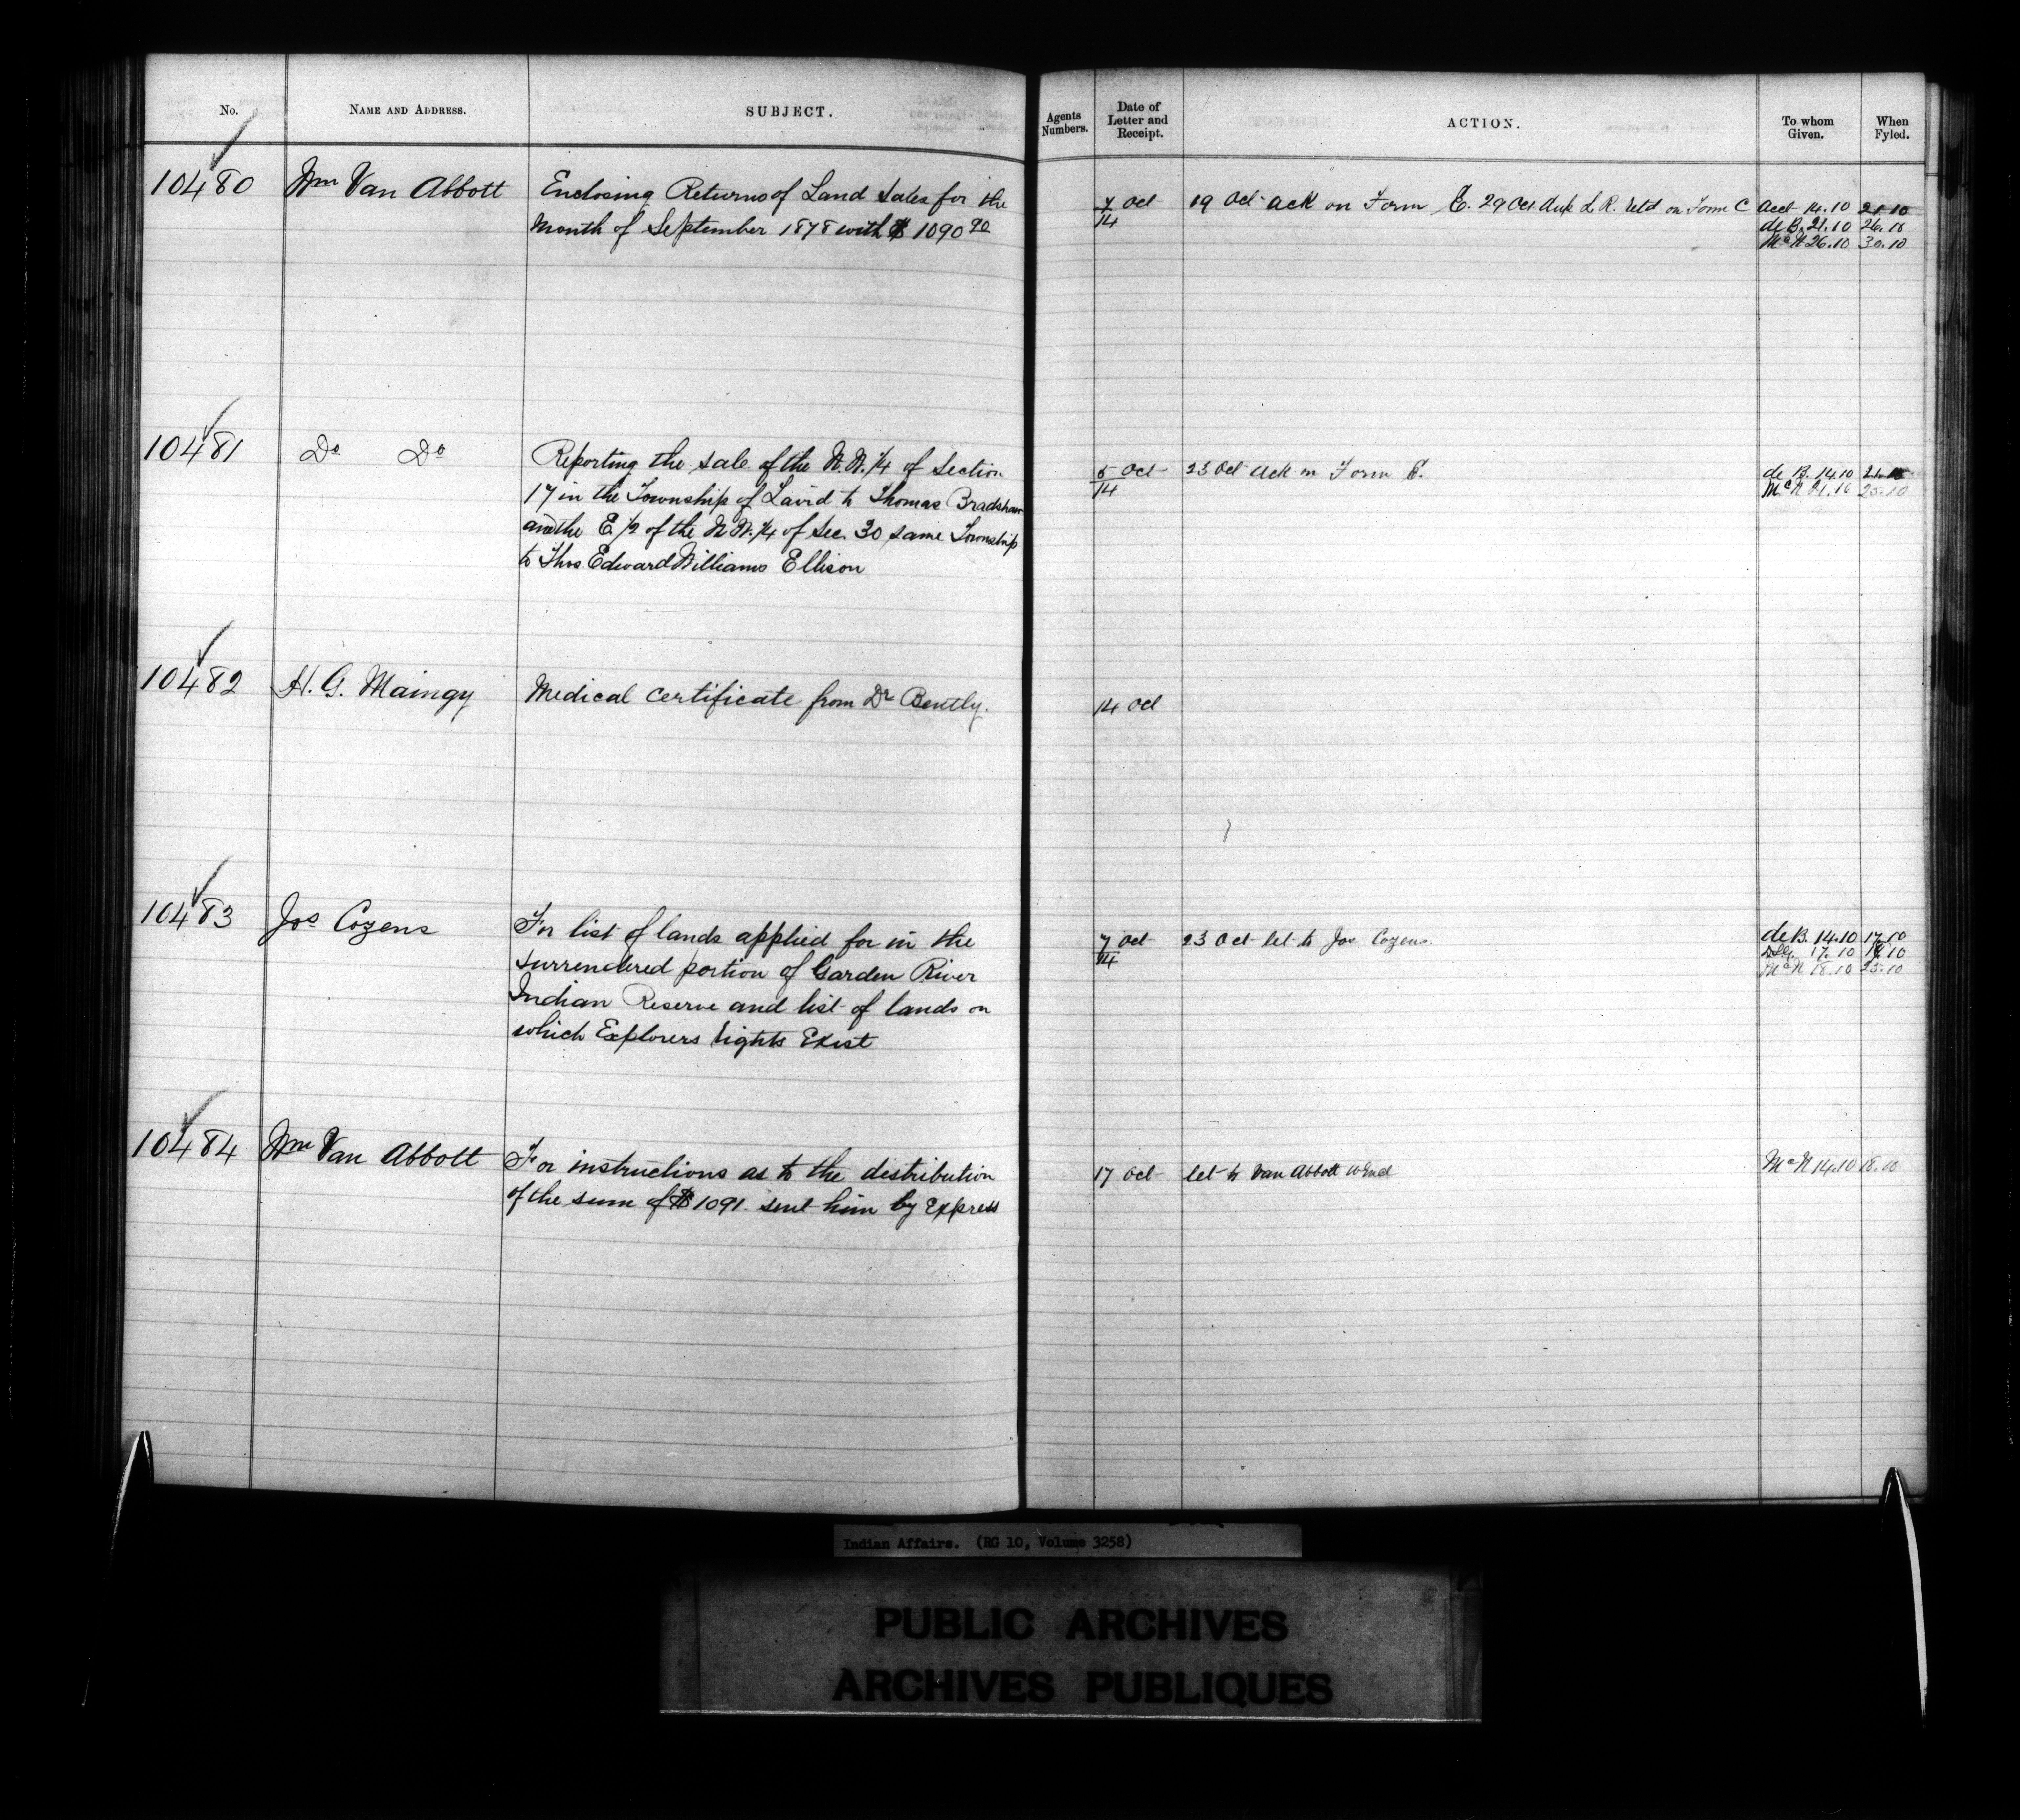 No. NAME AND ADDRESS. SUBJECT. Agents Numbers. Date of Letter and Receipt. ACTION. To whom Given. When Fyled.
10480 Wm Van Abbott Enclosing Returns of Land Sales for the
Month of September 1878 with $1090 90
7/14 Oct 19 Oct ack on Form E. 29 Oct Dup L. R. retd on Form C Acct 14.10 21.10
de B. 21.10 26.10
McN 26.10 30.10
10481 Do Do Reporting the sale of the N.W. 1/4 of Section
17 in the Township of Laird to Thomas Bradshaw
and the E 1/2 of the N.W. 1/4 of Sec. 30 same Township
to Thos. Edward Williams Ellison
5/14 Oct 23 Oct ack on Form E. de B. 14.10 21.10
McN 21.10 25.10
10482 H. G. Maingy Medical certificate from Dr Bently.
14 Oct
10483 Jos Cozens For list of lands applied for in the
surrendered portion of Garden River
Indian Reserve and list of lands on
which Explorers rights Exist
7/14 Oct 23 Oct let to Jos Cozens. de B. 14.10 17.10
17.10 18.10
McN 18.10 25.10
10484 Wm Van Abbott For instructions as to the distribution
of the sum of $1091. sent him by Express
17 Oct let to Van Abbott McN 14.10 18.10
Indian Affairs. (RG 10, Volume 3258)
PUBLIC ARCHIVES
ARCHIVES PUBLIQUES